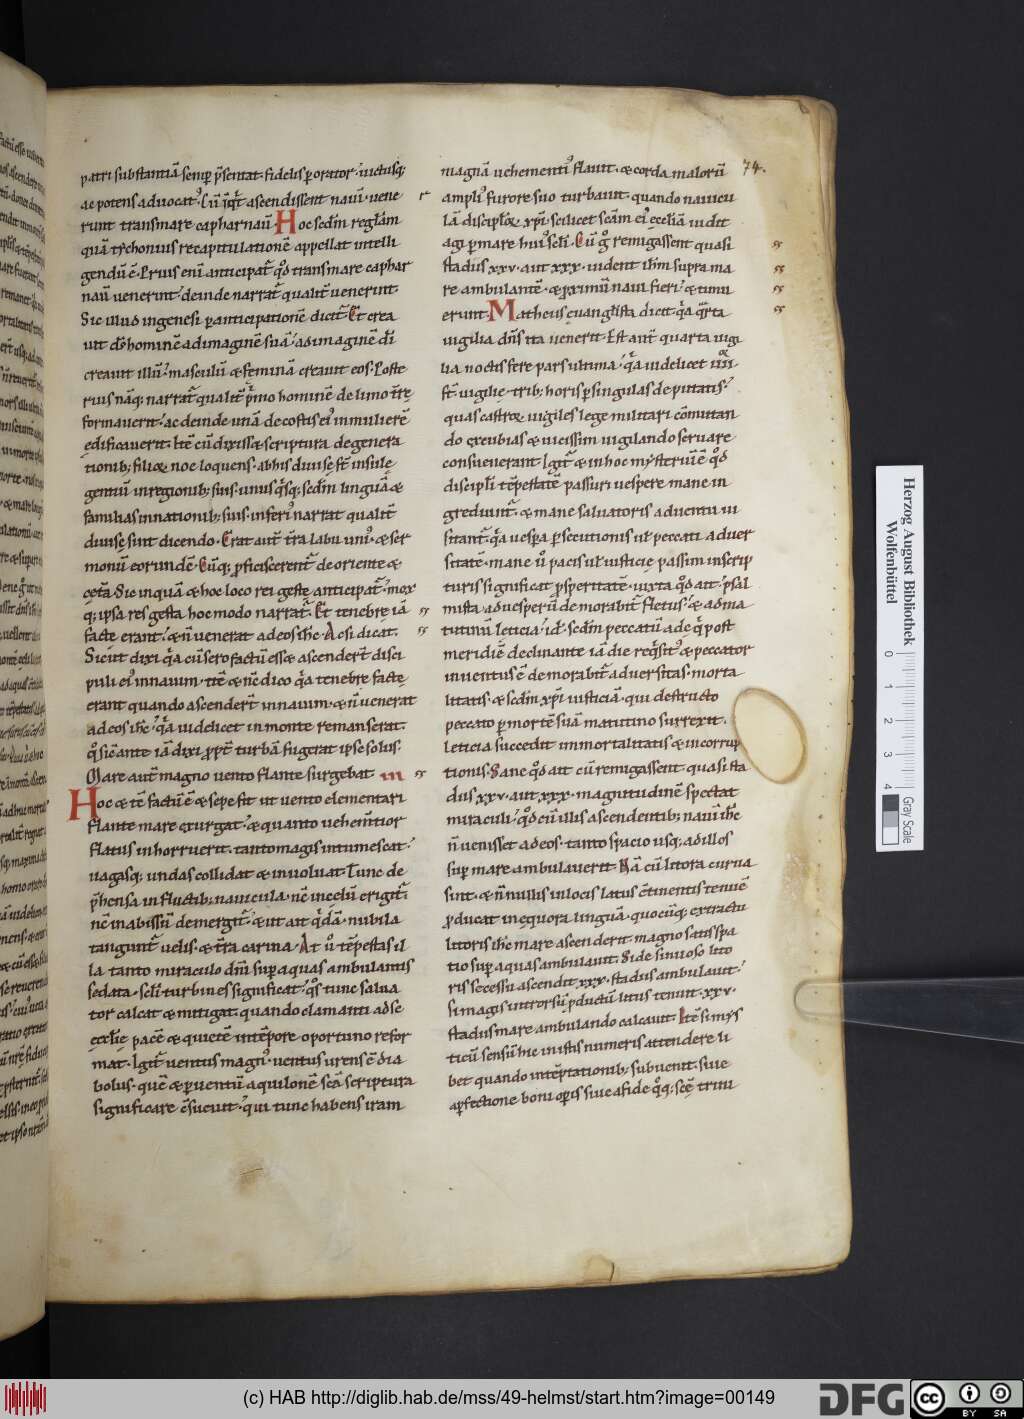 patri substantiā semp p̄sentat. fidelis ꝑ orator. iuctusq;
ac potens aduocat᷒. Cū igr̄ ascendissent nauī. uene
runt transmare capharnaū. Hoc scdm̄ reglam
quā tychonius recapitulationē appellat intelli
gendū ē. Prius enī anticipat qd̄ transmare caphar
naū uenerint. deinde narrat qualit uenerint.
Sic illud in genesi ꝑ anticipationē dicit. Et crea
uit ds̄ hominē ad imaginē suā. ad imaginē dī
creauit illū. masculū & feminā creauit eos. Poste
rius nāq; narrat qualit p̄mo hominē de limo trę
formauerit. ac deinde unā de costis ei᷒ in mulierē
edificauerit. Itē cū dixisset scriptura de genera
tionib; filioꝝ noe loquens. ab his diuisę st̄ insulę
gentiū in regionib; suis. unusq̄sq; scdm̄ linguā &
familias in nationib; suis. inferi᷒ narrat qualit
diuisę sint dicendo. Erat aut tra labii uni᷒. & ser
monū eorundē. Cūq; proficiscerent de oriente &
cętā. Sic inquā & hoc loco rei gestę anticipat. mox
q; ipsa res gesta hoc modo narrat. Et tenebrę iā
factę erant. & n̄ uenerat ad eos ihc̄. Ac si dicat.
Sicut dixi qa cū sero factū esset ascendert disci
puli ei᷒ in nauim. itē & nc̄ dico qa tenebrę factę
erant quando ascendert in nauim. & n̄ uenerat
ad eos ihc̄. qa uidelicet in monte remanserat.
qō sic ante iā dixi propt turbā fugerat ipse solus.
Mare aut magno uento flante surgebat. in
Hoc & tē factū ē & sepe fit ut uento elementari
flante mare exurgat. & quanto uehementior
flatus inhorruerit. tanto magis intumescat.
uagasq; undas collidat & inuoluat. Tunc de
p̄hensa in fluctib; nauicula. nc̄ in celū erigit
nc̄ in abissū demergit. & ut ait q̄dā. nubila
tangunt uelis. & tra carina. At u᷒ tēpestas il
la tanto miraculo dn̄i sup aquas ambulantis
sedata. scl̄i turbines significat. qōs tunc salua
tor calcat & mitigat. quando clamanti ad se
ęcclię pacē & quietē in tēpore oportuno refor
mat. Igit uentus magn᷒. uentus urens ē dia
bolus. quē & ꝑ uentū aquilonē scā scriptura
significare cōsueuit. qui tunc habens iram
74.
magnā uehementi᷒ flauit. & corda malorū
ampli᷒ furore suo turbauit. quando nauicu
lā discipl̄oꝝ xp̄i scilicet scām ei᷒ ęccliā uidit
agi ꝑ mare hui᷒ scl̄i. Cū gō remigassent quasi
stadiis xxv. aut xxx. uident ihm̄ supra ma
re ambulantē. & proximū naui fieri. & timu
erunt. Matheus euanglista dicit qa q̄rta
uigilia dn̄s ita uenerit. Est aut quarta uigi
lia noctis fere pars ultima. qa uidelicet iiii
st̄ uigilię. trib; horis ꝑ singulas deputatis.
quas castroꝝ uigiles lege militari cōmutan
do excubias & uicissim uigilando seruare
consueuerant. Igit & in hoc mysteriū ē qd̄
discipli tēpestatē passuri uespere mane in
grediunt. & mane saluatoris aduentu ui
sitant. qa uespa ꝑsecutionis ul peccati aduer
sitatē. mane u᷒ pacis ul iusticię passim inscrip
turis significat prosperitatē. iuxta qd̄ ait psal
mista. ad uesperū demorabit fletus. & ad ma
tutinū leticia. id̄. scdm̄ peccatū adę qd̄ post
meridiē declinante iā die reqsit᷒ & peccator
inuentus ē demorabit aduersitas. morta
litatis. & scdm̄ xp̄i iusticiā. qui destructo
peccato ꝑ mortē suā matutino surrexit.
leticia succedit inmortalitatis & incorrup
tionis. Sane qd̄ ait cū remigassent quasi sta
diis xxv. aut xxx. magnitudinē spectat
miraculi. qd̄ cū illis ascendentib; nauī ihc̄
n̄ uenisset ad eos. tanto spacio usq; ad illos
sup mare ambulauerit. Nā cū litora curua
sint. & n̄ nullis in locis latus cōtinentis tenuē
producat in ęquora linguā. quocūq; extractu
litoris ihc̄ mare ascenderit. magno satis spa
tio sup aquas ambulauit. Si de sinuoso lito
ris secessu ascendit xxx. stadiis ambulauit.
si magis introrsū productū litus tenuit. xxv.
stadiis mare ambulando calcauit. Itē si mys
ticū sensū hic in istis numeris attendere li
bet quando in tēptationib; subuenit. siue
a ꝑfectione boni opis siue a fide qq; scę trini
Herzog August Bibliothek
Wolfenbüttel
0 1 2 3 4
Gray Scale
(c) HAB http://diglib.hab.de/mss/49-helmst/start.htm?image=00149
DFG
cc BY SA